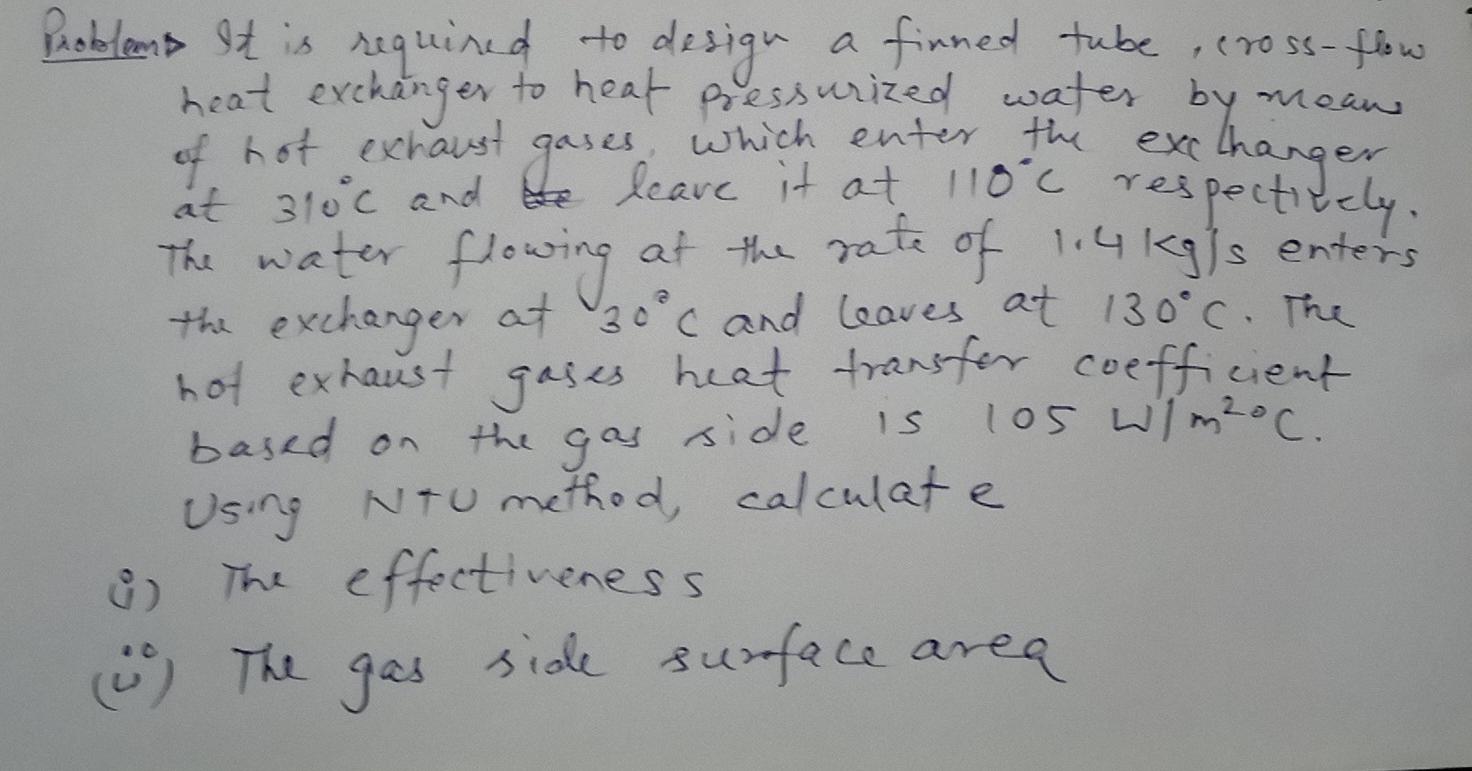 Problem It is required to design a finned tube, cross-flow
heat exchanger to heat pressurized water by means
of hot exhaust gases, which enter the exchanger
at 310°C and leave it at 110°C respectively.
The water flowing at the rate of 1.4 kg/s enters
the exchanger at 30°C and leaves at 130°C. The
hot exhaust gases heat transfer coefficient
based on the gas side is 105 W/m²°C.
Using NTU method, calculate
i) The effectiveness
(ii) The gas side surface area